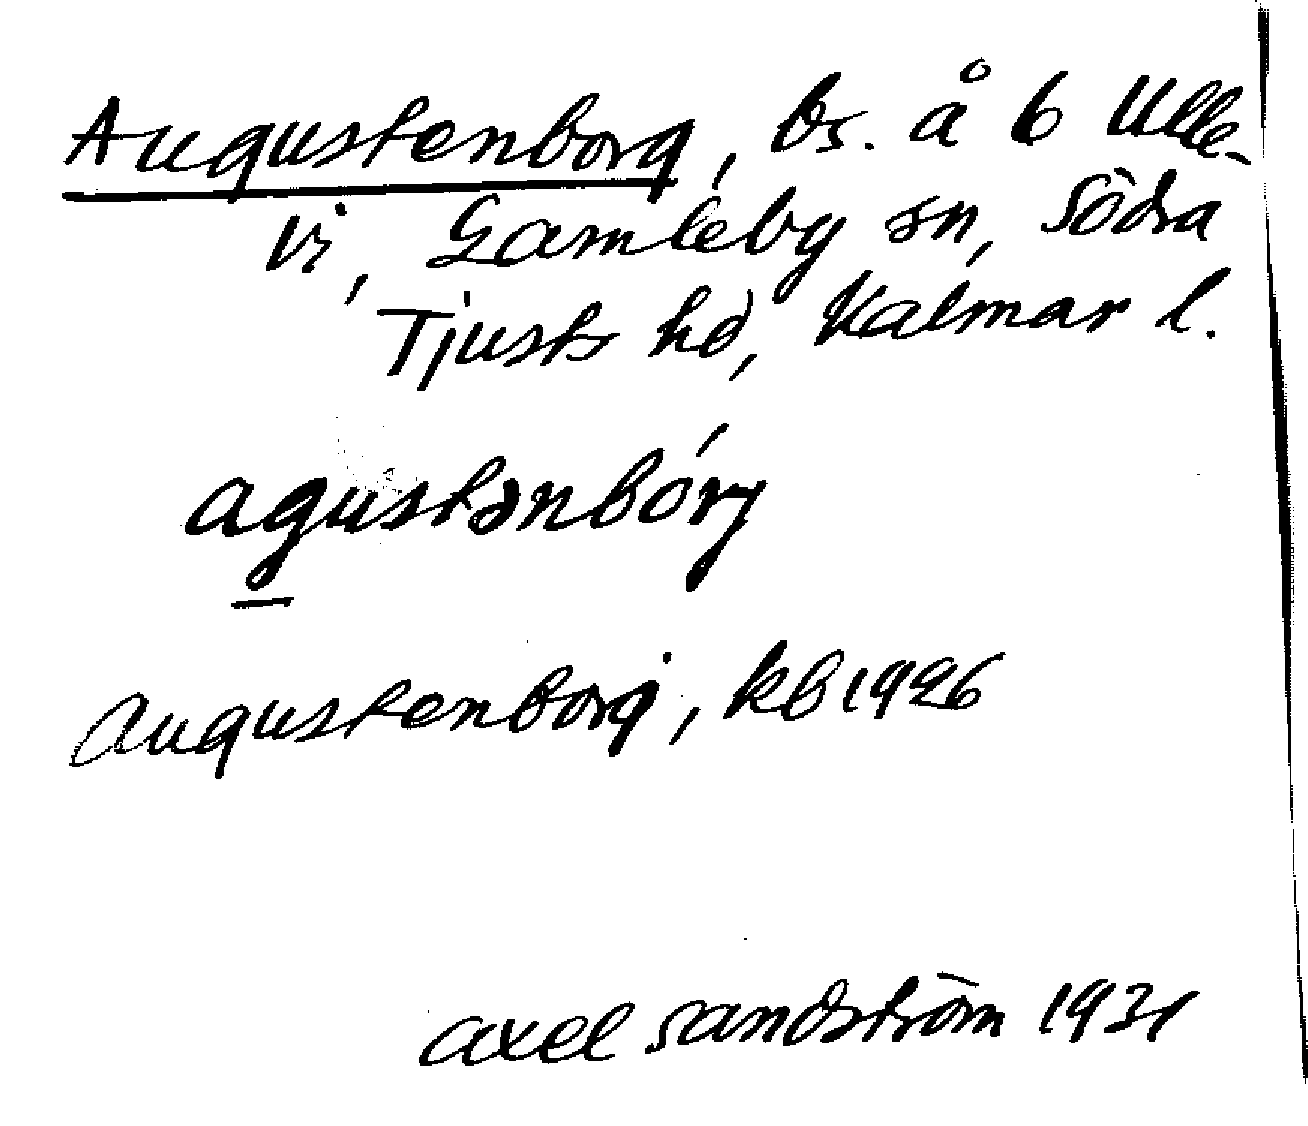 Augustenborg, bs. å b Ulle-
vi, Gamleby sn, Södra
Tjusts hd, Kalmar l.
agustənbórj
Augustenborg, kb 1926
Axel Sandström 1931